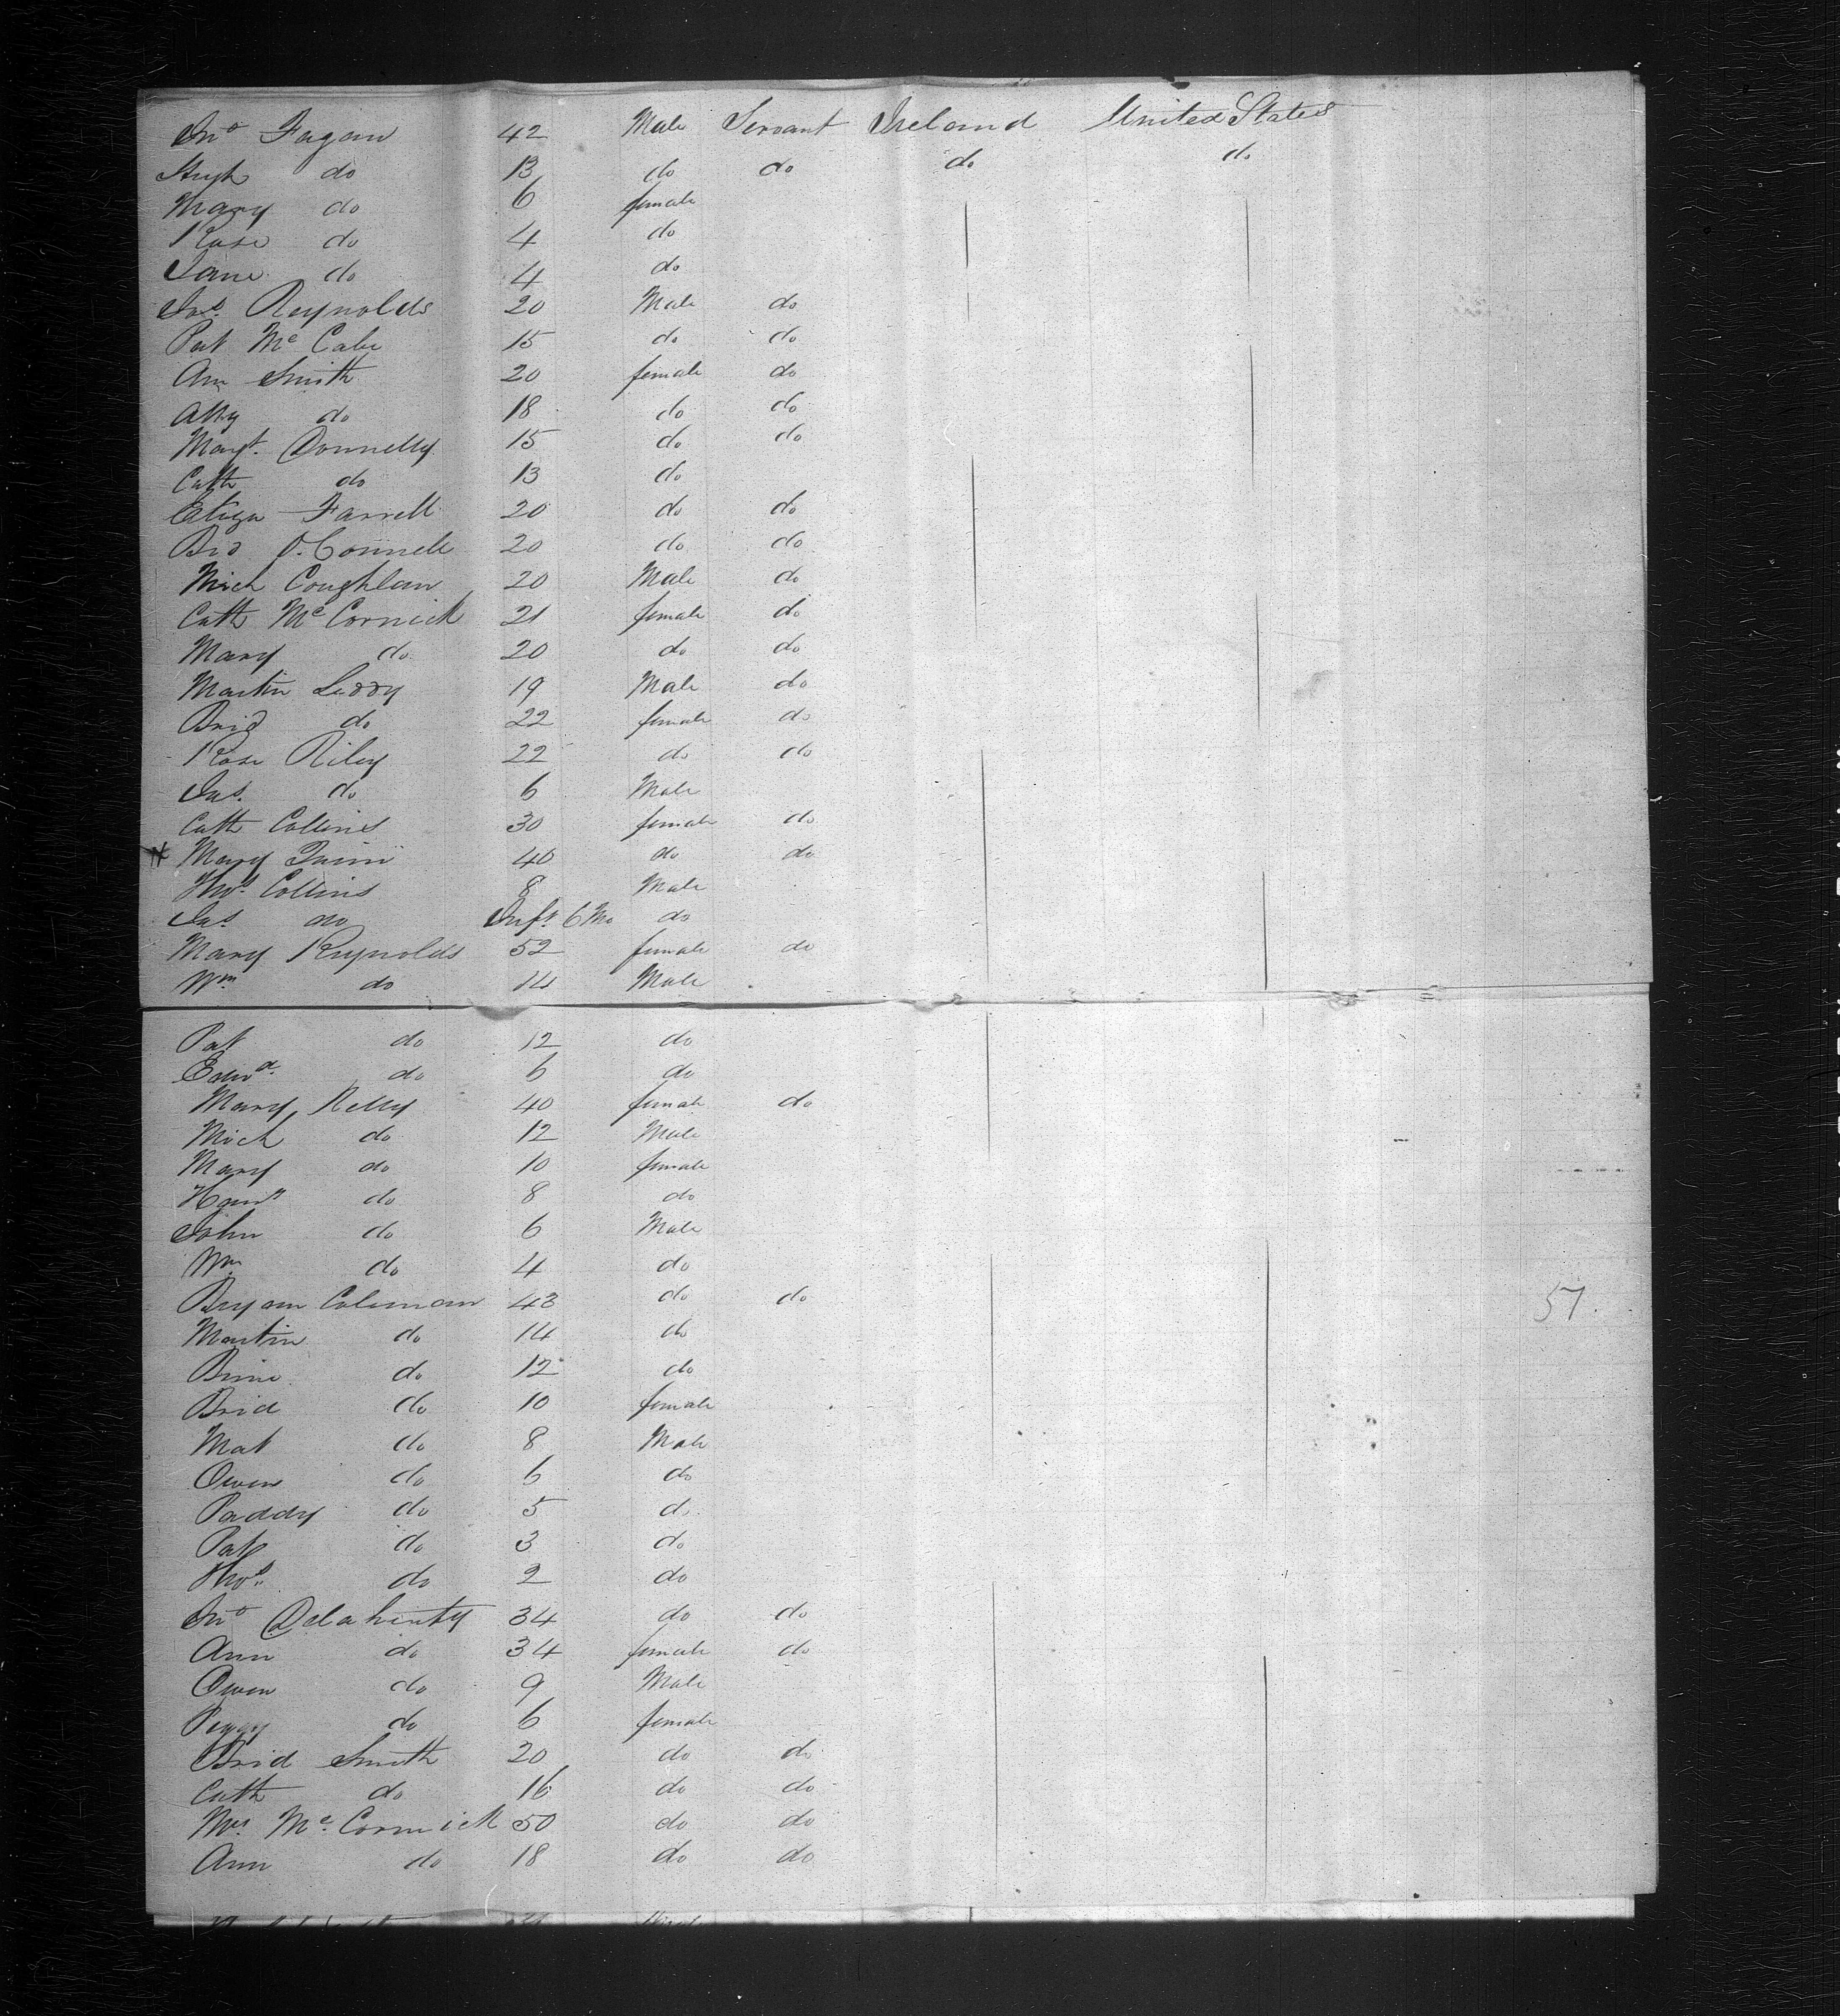 Jno Fagan 42 Male Servant Ireland United States
Hugh do 13 do do do do
Mary do 6 female
Rose do 4 do
Jane do 4 do
Jas. Reynolds 20 Male do
Pat McCabe 15 do do
Ann Smith 20 female do
do 18 do do
Margt. Donnelly 15 do do
Cath do 13 do
Eliza Farrell 20 do do
Brd O.Connell 20 do do
Mich Coughlan 20 Male do
Cath McCormick 21 female do
Mary do 20 do do
Martin Leddy 19 Male do
Brid do 22 female do
Rose Riley 22 do do
Jas. do 6 Male
Cath Collins 30 female do
Mary Quinn 40 do do
Thos. Collins 8 Male
Jas. do Inft. 6 Mo do
Mary Reynolds 52 female do
Wm do 14 Male
Pat do 12 do
Edwd. do 6 do
Mary Reily 40 female do
Mich do 12 Male
Mary do 10 female
do 8 do
John do 6 Male
Wm do 4 do
Bryan Coleman 43 do do
57.
Martin do 14 do
do 12 do
Brid do 10 female
Mat do 8 Male
Owen do 6 do
Paddy do 5 do
Pat do 3 do
Thos. do 2 do
Jno Delahunty 34 do do
Ann do 34 female do
Owen do 9 Male
Peggy do 6 female
Brid Smith 20 do do
Cath do 16 do do
Mrs McCormick 50 do do
Ann do 18 do do